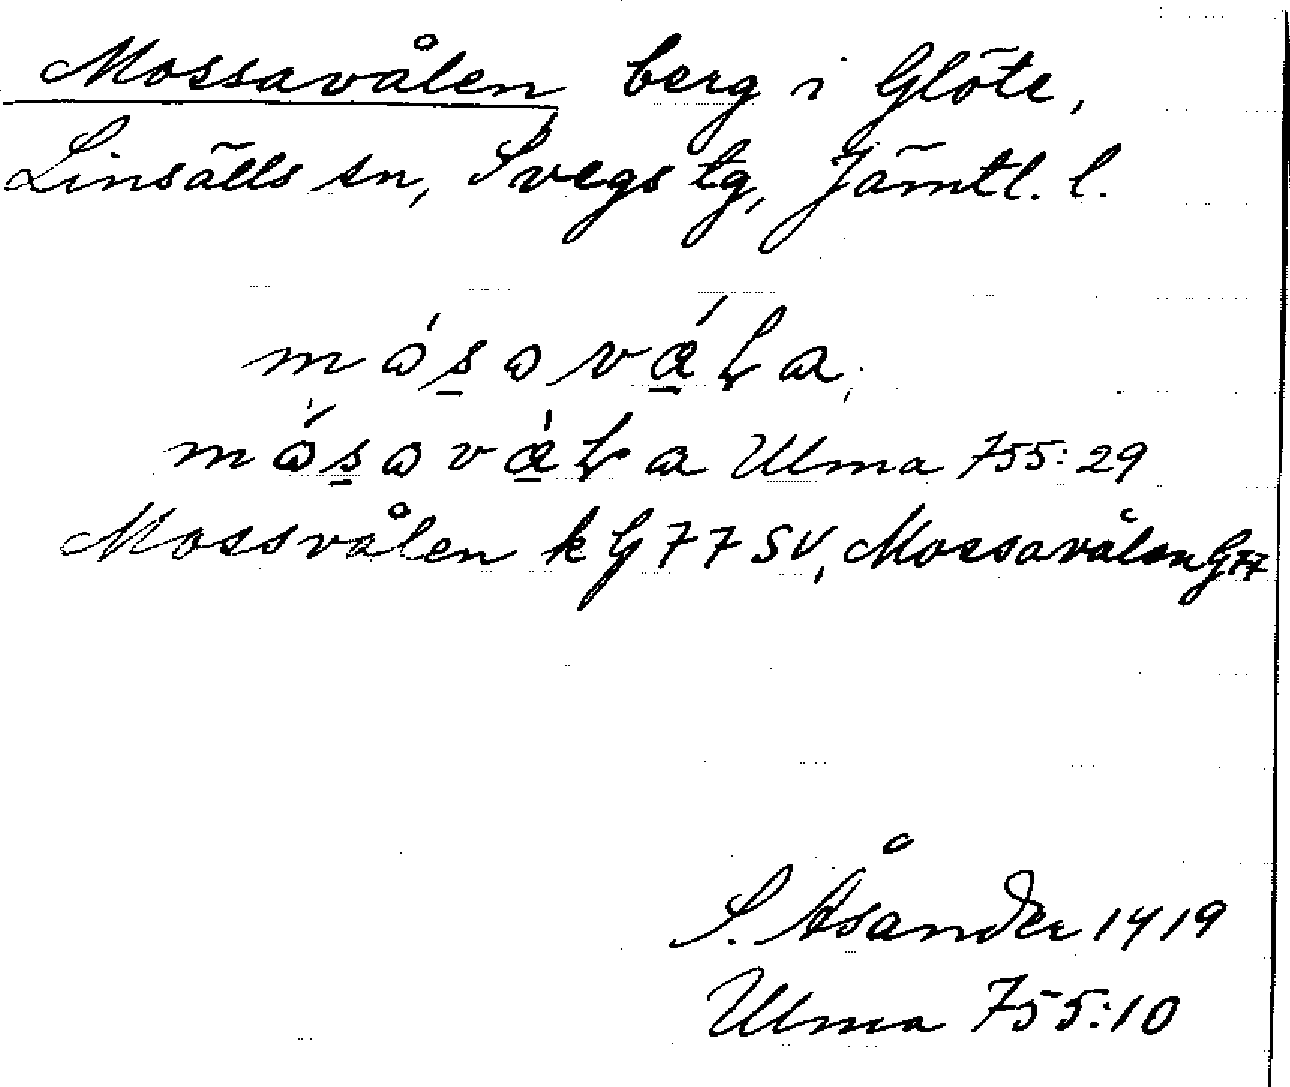 Mossavålen berg i Glöte,
Linsälls sn, Svegs tg, Jämtl. l.
Ulma 755:29
Mossvålen k G 77 SV, Mossavålen G 77
S. Åsander 1919
Ulma 755:10